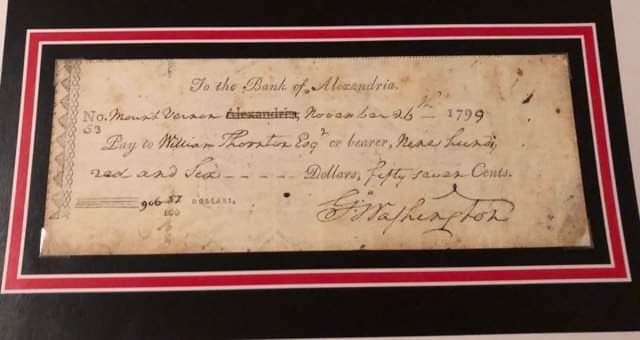 To the Bank of Alexandria.
No. Mount Vernon Alexandria, November 26th — 1799
53
Pay to William Thornton Esqr or bearer, Nine hund
red and Six - - - - Dollars, fifty seven Cents.
906 57/100 DOLLARS,
Go Washington